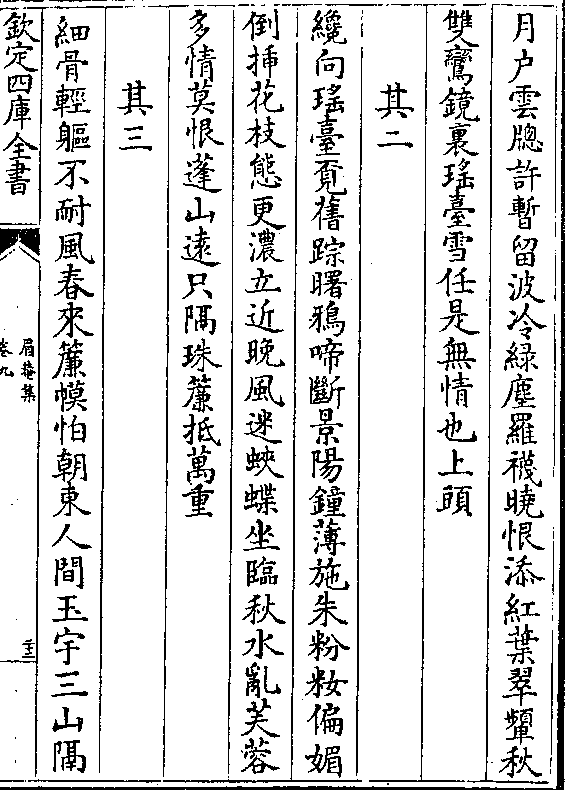 月户雲牕許暫留波冷緑塵羅襪曉恨添紅葉翠顰秋
雙鸞鏡裏瑤臺雪任是無情也上頭
其二
纔向瑤臺覔舊踪曙鴉啼斷景陽鐘薄施朱粉妝偏媚
倒揷花枝態更濃立近晚風迷蛺蝶坐臨秋水亂芙蓉
多情莫恨蓬山逺只隔珠簾抵萬重
其三
細骨輕軀不耐風春來簾幙怕朝東人間玉宇三山隔
欽定四庫全書
眉菴集
卷九
二十三